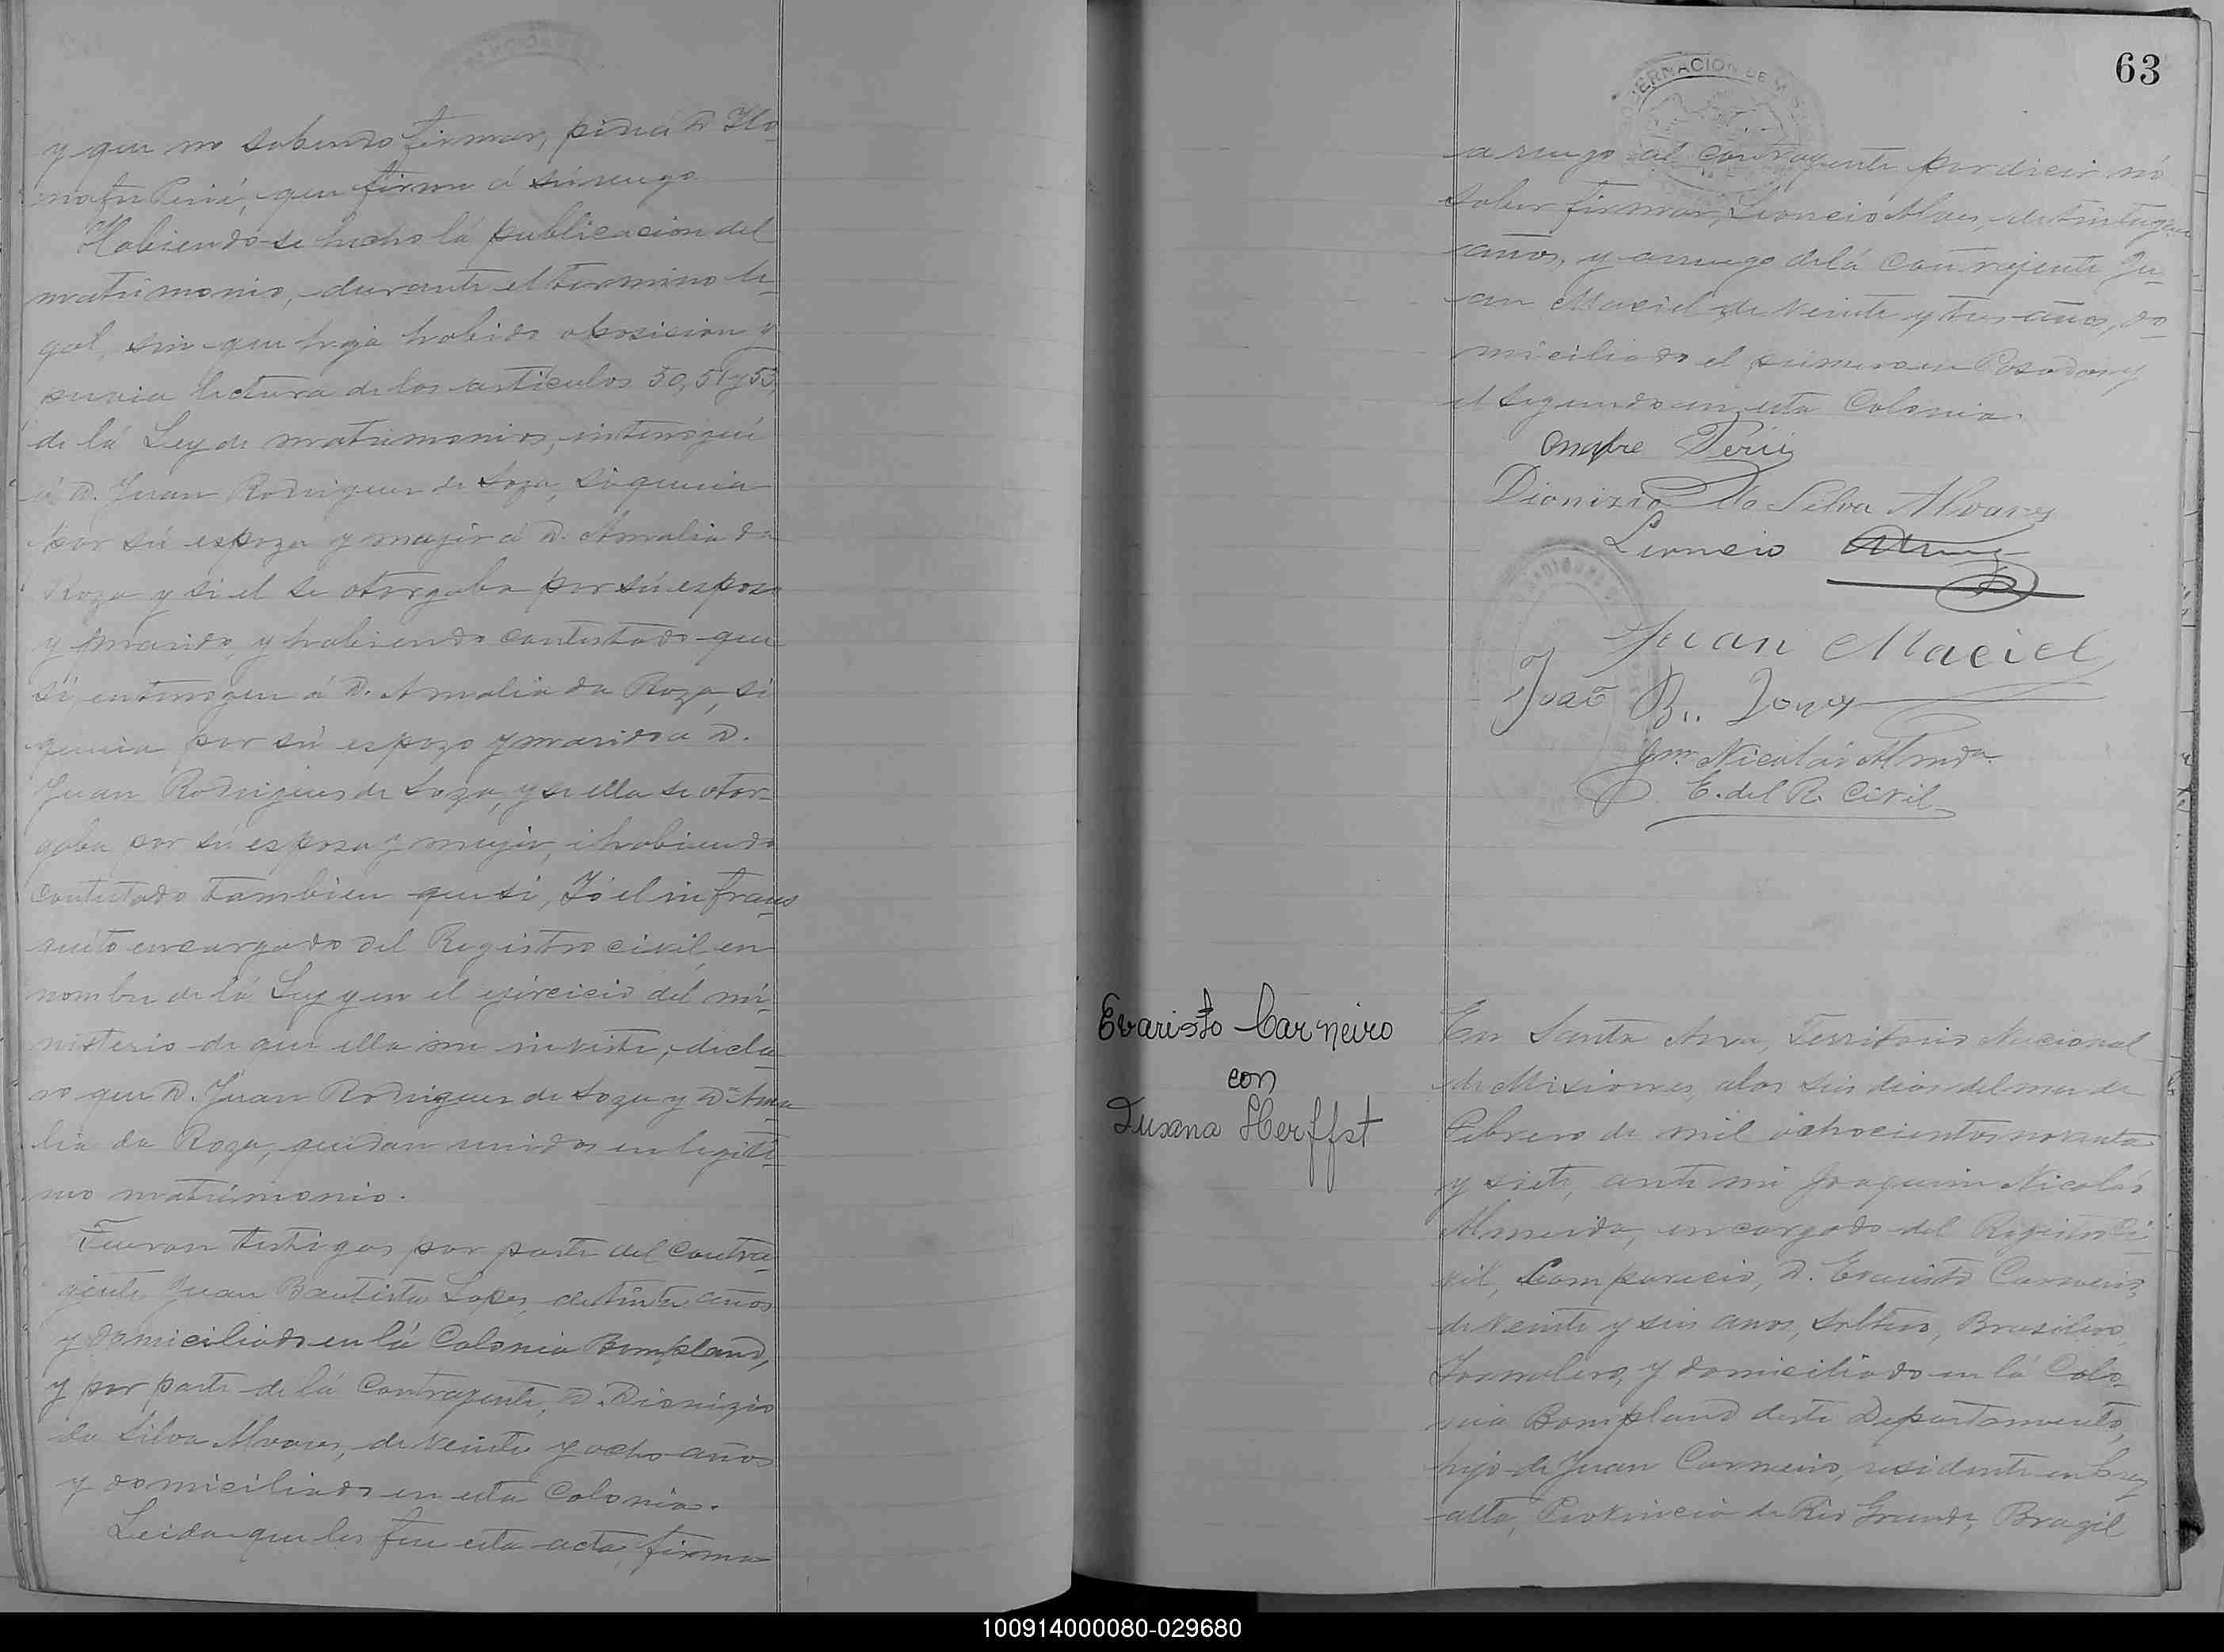 y que no sabendo firmar, pidió á D. Ho
nofre Periè, que firme á sú ruego
Habiendo se hecho lá publicacion del
matrimonio, durante el termino le-
gal, sin que haja habido oposicion y
previa lectura de los articulos 50, 51 y 53,
de lá Ley de matrimonios, interogué
á D. Juan Rodrigues de Soza, si queria
por sú espoza y mujer á D. Amalia da
Roza y si el se otorgaba por sú esposo
y marido, y habiendo contestado que
si, enterogue á D. Amalia da Roza, si
queria por sú espozo y marido a D.
Juan Rodrigues de Soza, y se ella se otor-
gaba por sú esposa y mujer, i habiendo
contestado tambien que si, Yó el infraes
crito encargado del Registro civil, en
nombre de lá Ley y en el ejercicio del mi-
nisterio de que ella me inviste, decla-
ro que D. Juan Rodrigues de Soza y Dª Ama
lia da Roza, quedan unidos en legiti-
mo matrimonio.
Fueron testigos por parte del contra-
gente Juan Bautista Lopes, de trinta años
y domiciliado en lá Colonia Bompland,
y por parte de lá Contragente, D. Dionizio
da Silva Alvares, de veinte y ocho años
y domiciliado en esta Colonia.
Leida que les fue esta acta, firma
63
GOBERNACION DE MISIONES
a ruego del contragente por dicir nó
saber firmar, Leoncio Alves, de
años, y a ruego de lá contrajente Ju-
an Maciel de veinte y tres años, do
miciliado el primero en Posadas y
el segundo en esta Colonia.
Onofre Periè
Dionizio da Silva Alvares
Leoncio
Juan Maciel
João B.
Jqm. Nicolás Almda.
E. del R. Civil
Evaristo Carneiro
con
Suxana Herffst
En Santa Ana, Territorio Nacional
de Misiones, a los seis dias del mes de
Febrero de mil ochocientos noventa
y siete, ante mi Joaquim Nicolás
Almeida, encargado del Registro Ci-
vil, Comparecio, D. Evaristo Carneiro,
de veinte y seis anos, soltero, Brasilero,
Jornalero, y domiciliado en lá Colo-
nia Bompland deste Departamento,
hijo de Juan Carneiro, residente en Cruz
alta, Provincia de Rio Grande, Brazil
100914000080-029680